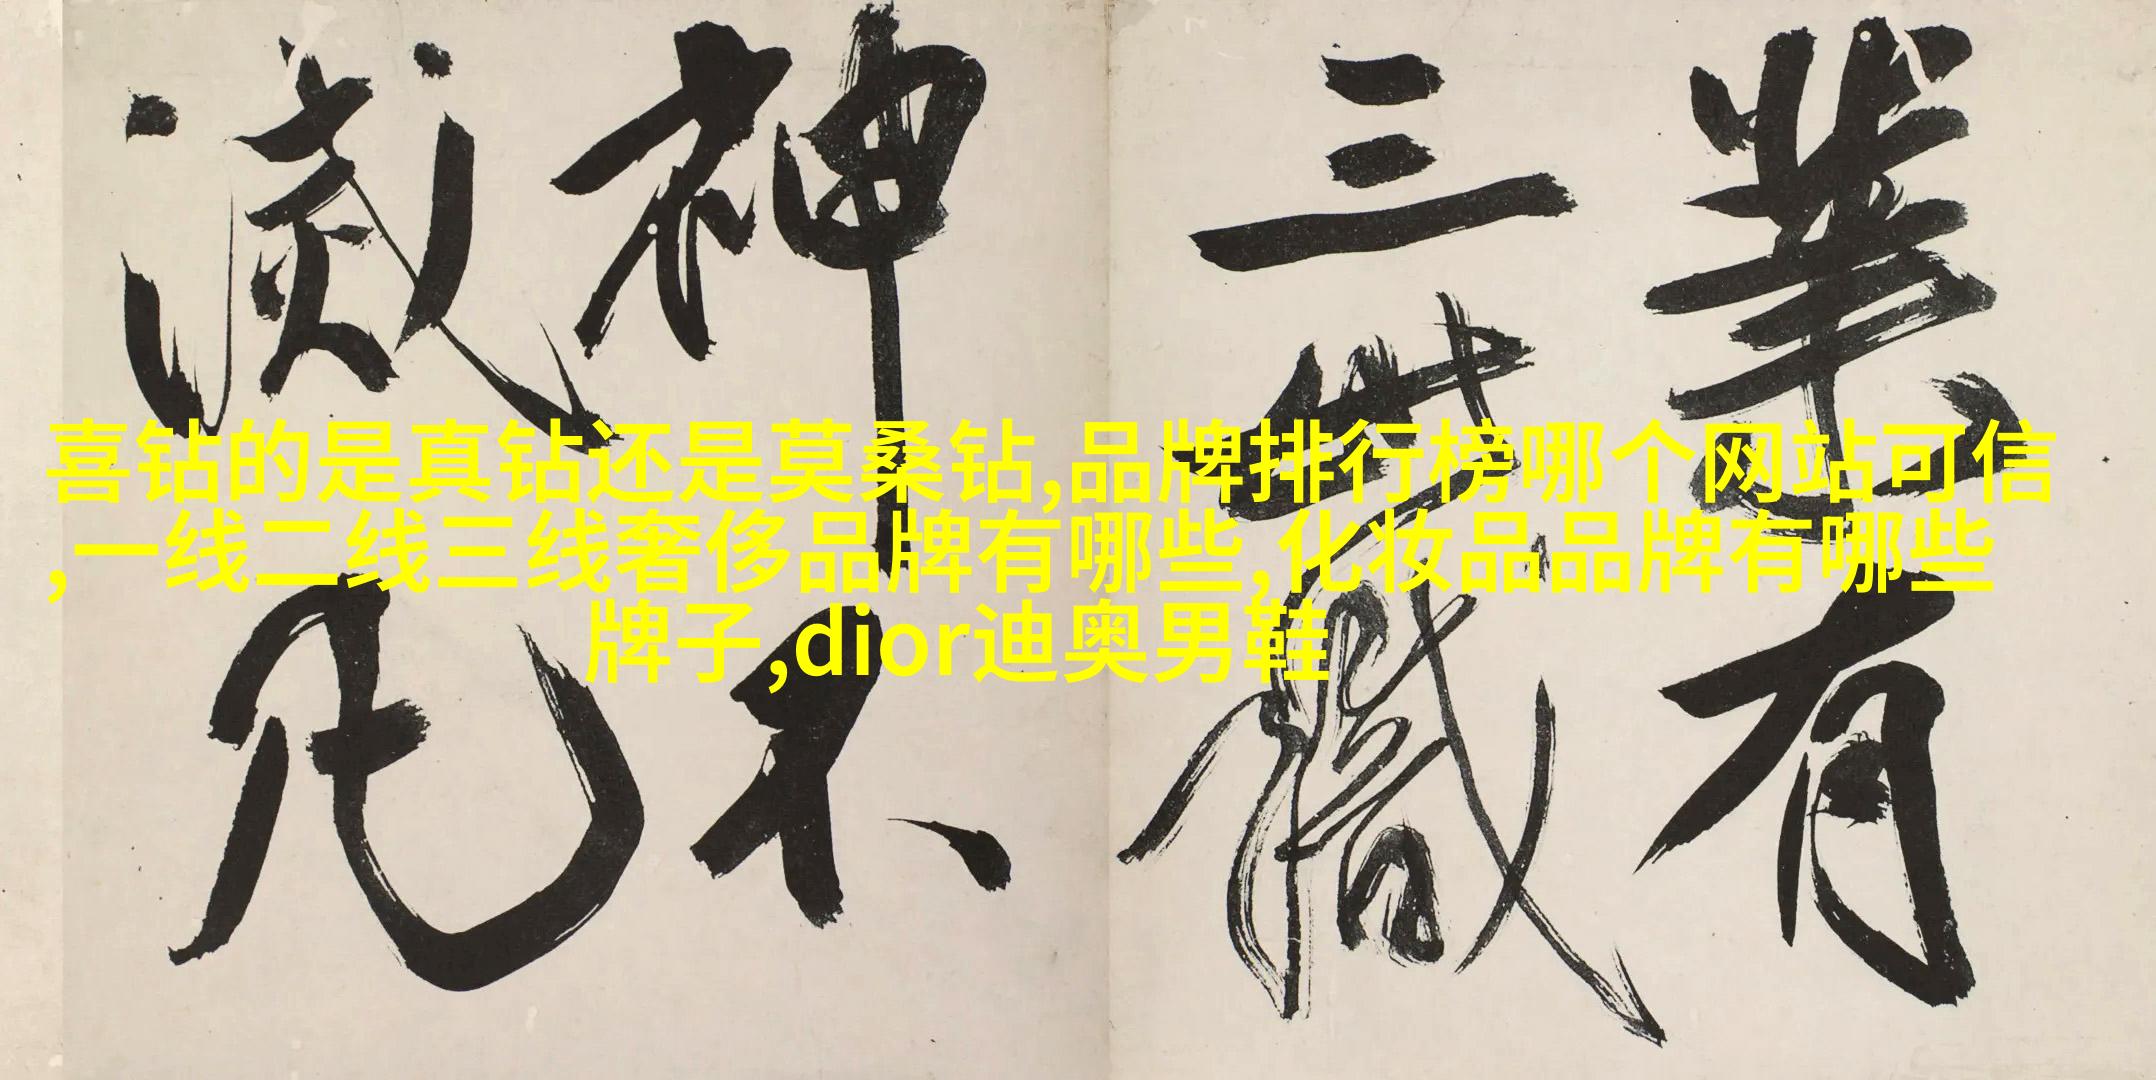 喜钻的是真钻还是莫桑钻,品牌排行榜哪个网站可信
,一线二线三线奢侈品牌有哪些,化妆品品牌有哪些
牌子,dior迪奥男鞋
業有
三世職
神不
滅凡